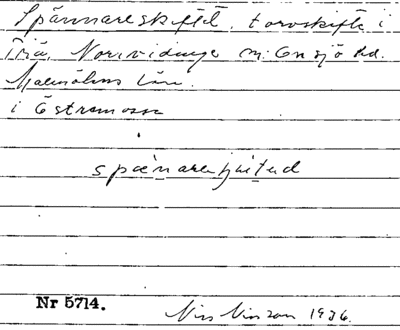 Spännareskiftet, torvskifte i
Trä, Norrvidinge sn. Onsjö hd.
Malmöhus län.
i Östremosse
spænareʃɥiftəd
Nr 5714.
Nils Nilsson 1936.